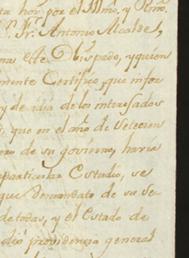 ta hoy. por el Illmo. y Rmo.
Dr. Fr. Antonio Alcalde,
este Obispado, y quien
mente Certifico, que infor
y de adia de los interesados
que en el año de Setecien
de su govierno, havia
particular Estudio, se
que demandato de su Se
de todas, y el Estado de
dio providencia general